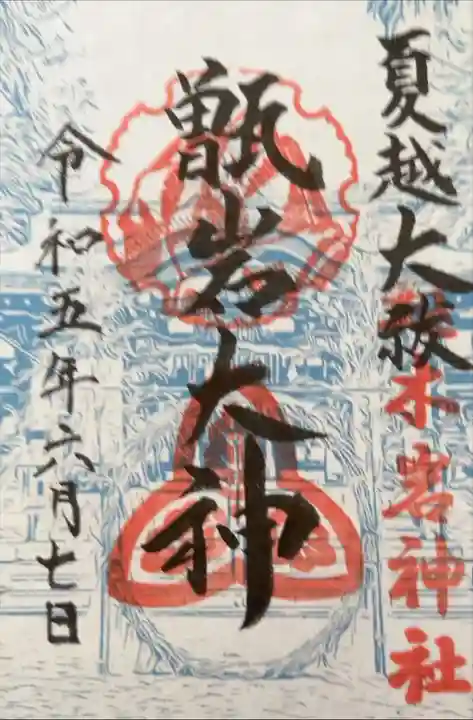 夏越大祓
越木岩神社
甑岩大神
令和五年六月七日